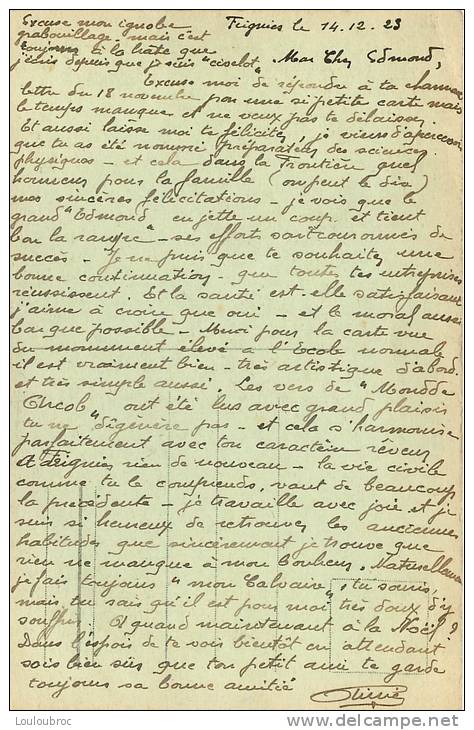 Excuse mon ignoble
grabouillage, mais c'est
toujours à la hâte que
j'écris depuis que je suis "civelot"
Feignies le 14.12.23
Mon Cher Edmond,
Excuse moi de répondre à ta charmante
lettre du 18 novembre par une si petite carte mais
le temps manque et ne veux pas te délaisser.
Et aussi laisse moi te féliciter, je viens d'apercevoir
que tu as été nommé préparateur des sciences
physiques - et cela dans la Frontière quel
honneur pour la famille (on peut le dire)
mes sincères félicitations - je vois que le
grand "Edmond en jette un coup et tient
bon la rampe" - ses efforts sont couronnés de
succès - Je ne puis que te souhaiter une
bonne continuation - que toutes tes entreprises
réussissent. Et la santé est-elle satisfaisante
j'aime à croire que oui - et le moral aussi
bon que possible - Merci pour la carte vue
du monument élevé à l'Ecole normale
il est vraiment bien - très artistique d'abord
et très simple aussi. Les vers de "
" ont été lus avec grand plaisir
tu ne "dégénère pas - et cela s'harmonise
parfaitement avec ton caractère rêveur
A Feignies rien de nouveau - la vie civile
comme tu le comprends, vaut de beaucoup
la précédente - je travaille avec joie et je
suis si heureux de retrouver les anciennes
habitudes que sincèrement je trouve que
rien ne manque à mon bonheur. Naturellement
je fais toujours "mon Calvaire", tu souris,
mais tu sais qu'il est pour moi très doux d'y
souffrir. A quand maintenant à la Noël ?
Dans l'espoir de te voir bientôt en attendant
sois bien sûr que ton petit ami te garde
toujours sa bonne amitié
Louloubroc
delcampe.net